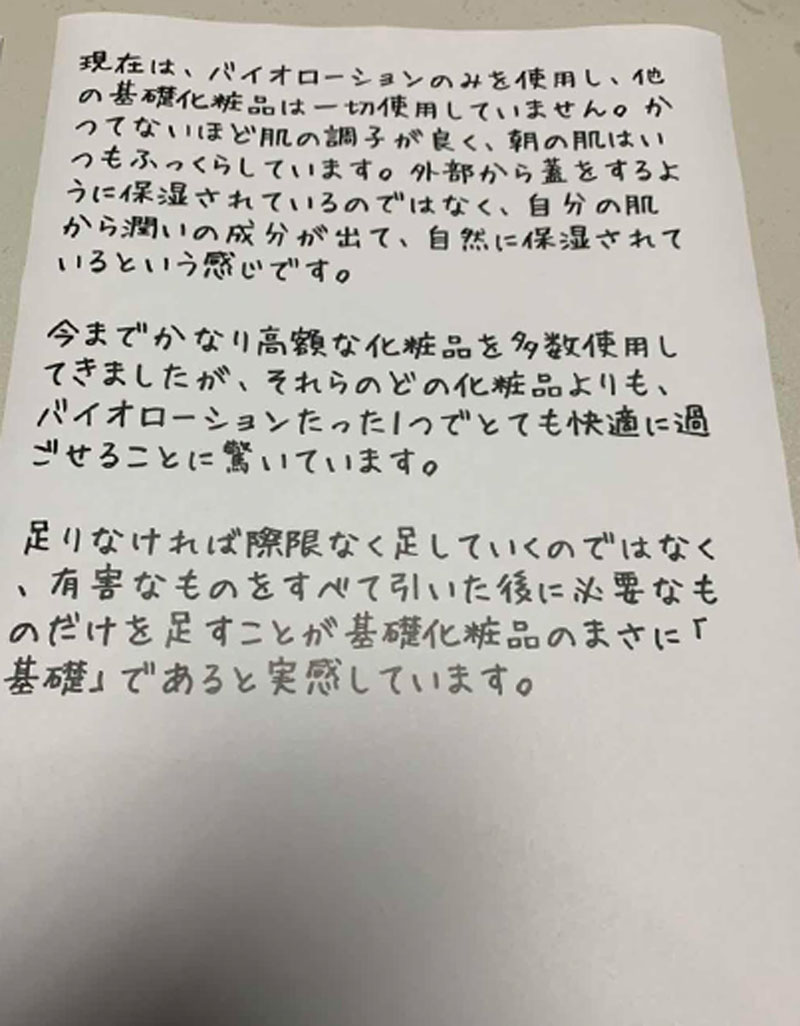 現在は、バイオローションのみを使用し、他
の基礎化粧品は一切使用していません。か
つてないほど肌の調子が良く、朝の肌はい
つもふっくらしています。外部から蓋をするよ
うに保湿されているのではなく、自分の肌
から潤いの成分が出て、自然に保湿されて
いるという感じです。
今までかなり高額な化粧品を多数使用し
てきましたが、それらのどの化粧品よりも、
バイオローションたった1つでとても快適に過
ごせることに驚いています。
足りなければ際限なく足していくのではなく
、有害なものをすべて引いた後に必要なも
のだけを足すことが基礎化粧品のまさに「
基礎」であると実感しています。